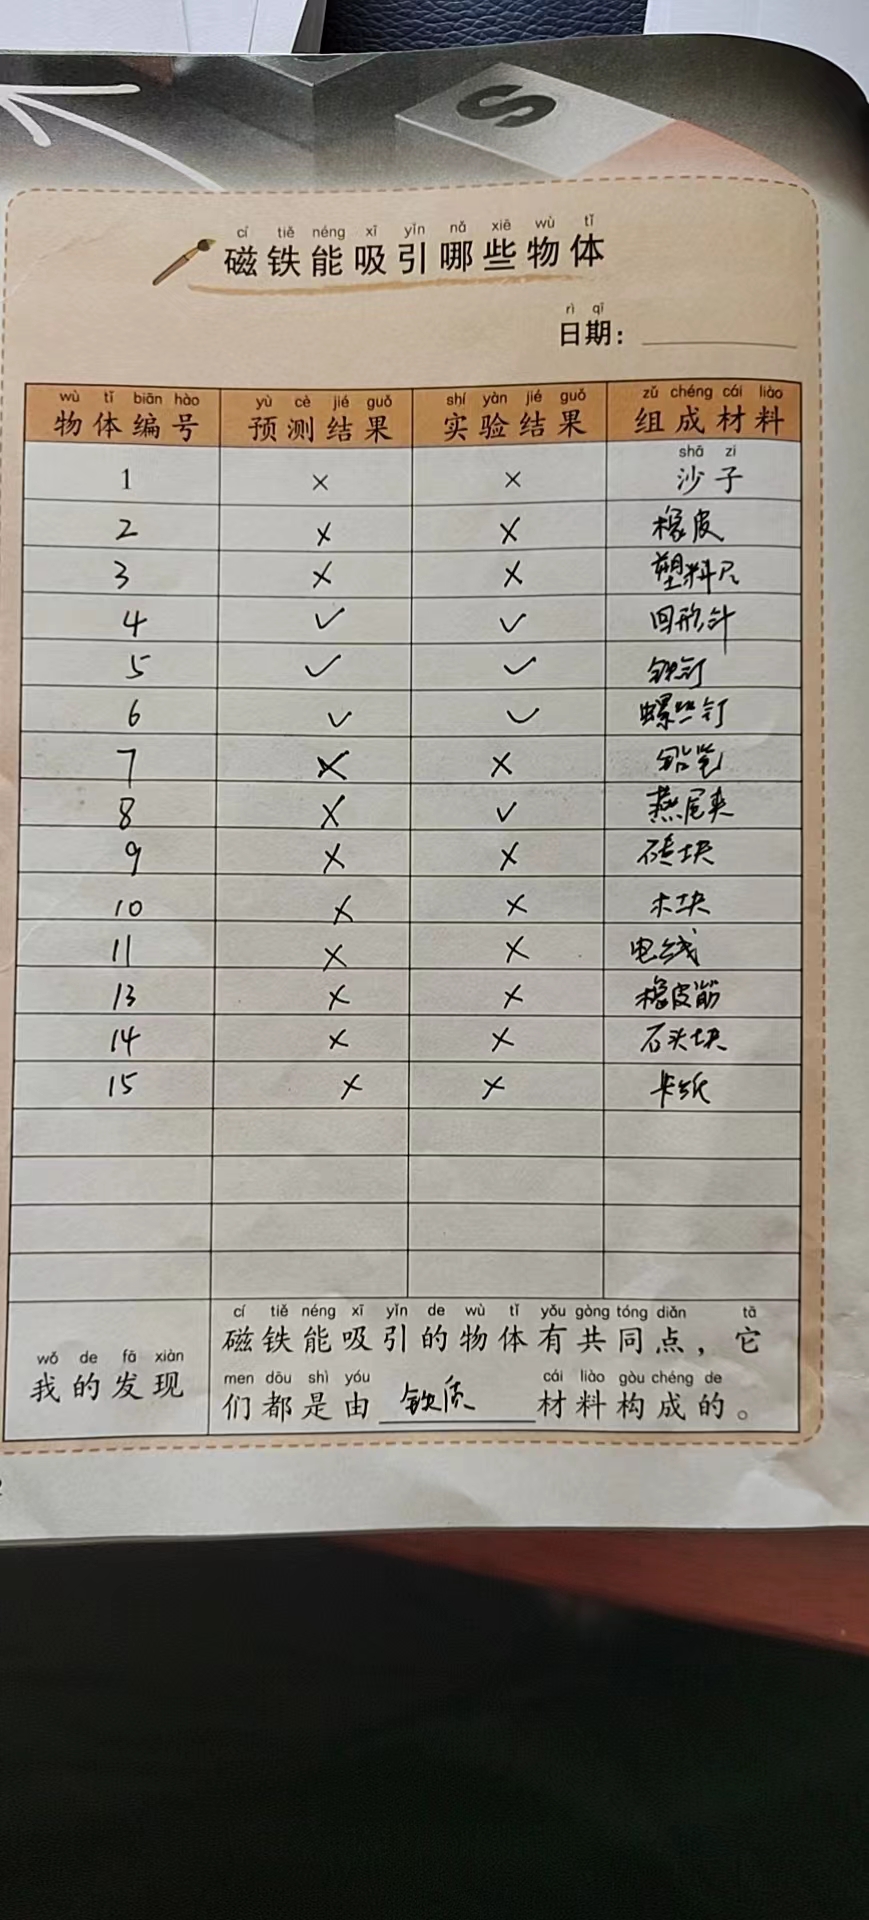 S
cí tiě néng xī yǐn nǎ xiē wù tǐ
磁铁能吸引哪些物体
rì qī
日期：
wù tǐ biān hào yù cè jié guǒ shí yàn jié guǒ zǔ chéng cái liào
物体编号 预测结果 实验结果 组成材料
shā zi
1 × × 沙子
2 × × 橡皮
3 × × 塑料尺
4 ✓ ✓ 回形针
5 ✓ ✓ 铁钉
6 ✓ ✓ 螺丝钉
7 × × 铅笔
8 × ✓ 燕尾夹
9 × × 砖块
10 × × 木块
11 × × 电线
13 × × 橡皮筋
14 × × 石头块
15 × × 卡纸
wǒ de fā xiàn
我的发现
cí tiě néng xī yǐn de wù tǐ yǒu gòng tóng diǎn tā
磁铁能吸引的物体有共同点，它
men dōu shì yóu cái liào gòu chéng de
们都是由 铁质 材料构成的。